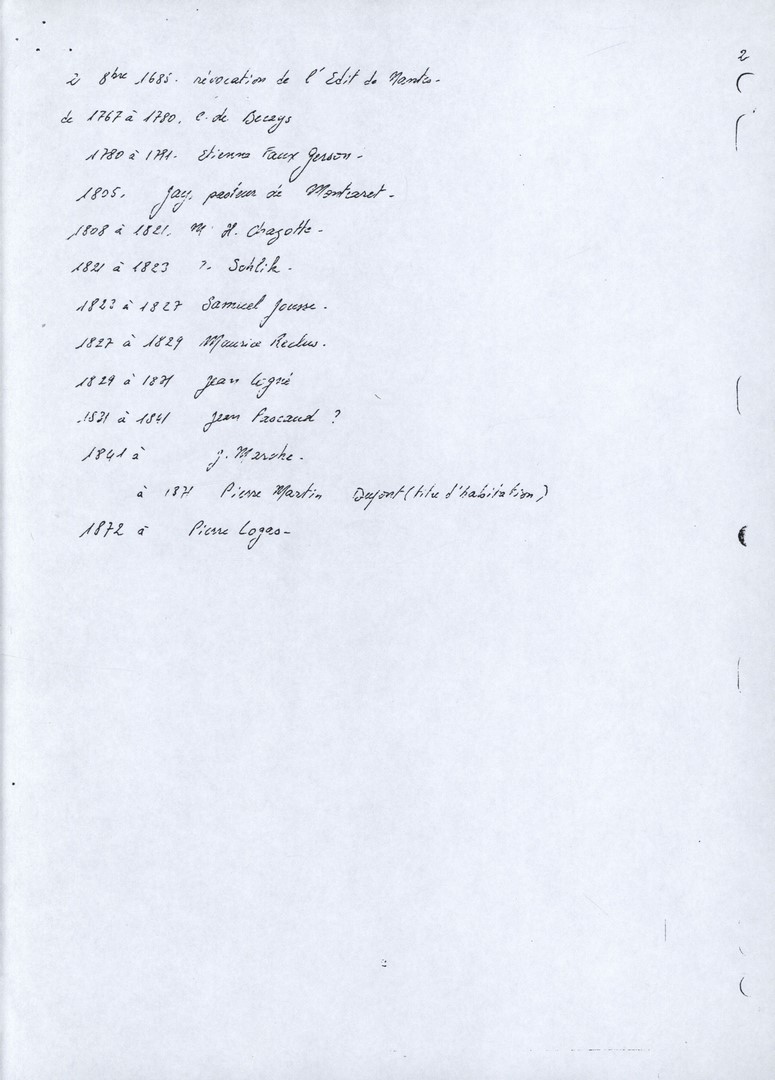 2
2 8bre 1685. révocation de l'Edit de Nantes-
de 1767 à 1780. C. de Decays
1780 à 1791. Etienne Faux Gerson-
1805. Jay, pasteur de Montcaret-
1808 à 1821. M. H. Chazotte-
1821 à 1823 ?. Schlik-
1823 à 1827 Samuel Jousse.
1827 à 1829 Maurice Reclus.
1829 à 1831 Jean Ligné
1831 à 1841 Jean Pascaud ?
1841 à J. Marche.
à 1871 Pierre Martin Dupont (titre d'habitation)
1872 à Pierre Logas-
2